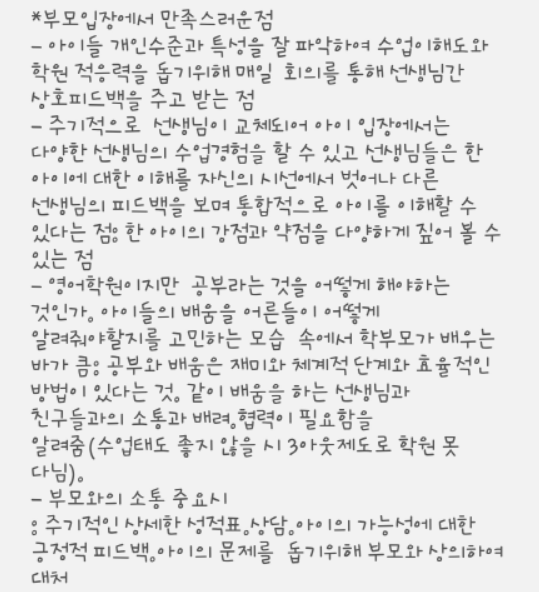 *부모입장에서 만족스러운점
- 아이들 개인수준과 특성을 잘 파악하여 수업이해도와
학원 적응력을 돕기위해 매일 회의를 통해 선생님간
상호피드백을 주고 받는 점
- 주기적으로 선생님이 교체되어 아이 입장에서는
다양한 선생님의 수업경험을 할 수 있고 선생님들은 한
아이에 대한 이해를 자신의 시선에서 벗어나 다른
선생님의 피드백을 보며 통합적으로 아이를 이해할 수
있다는 점: 한 아이의 강점과 약점을 다양하게 짚어 볼 수
있는 점
- 영어학원이지만 공부라는 것을 어떻게 해야하는
것인가, 아이들의 배움을 어른들이 어떻게
알려줘야할지를 고민하는 모습 속에서 학부모가 배우는
바가 큼: 공부와 배움은 재미와 체계적 단계와 효율적인
방법이 있다는 것, 같이 배움을 하는 선생님과
친구들과의 소통과 배려,협력이 필요함을
알려줌(수업태도 좋지 않을 시 3아웃제도로 학원 못
다님).
- 부모와의 소통 중요시
: 주기적인 상세한 성적표,상담,아이의 가능성에 대한
긍정적 피드백,아이의 문제를 돕기위해 부모와 상의하여
대처